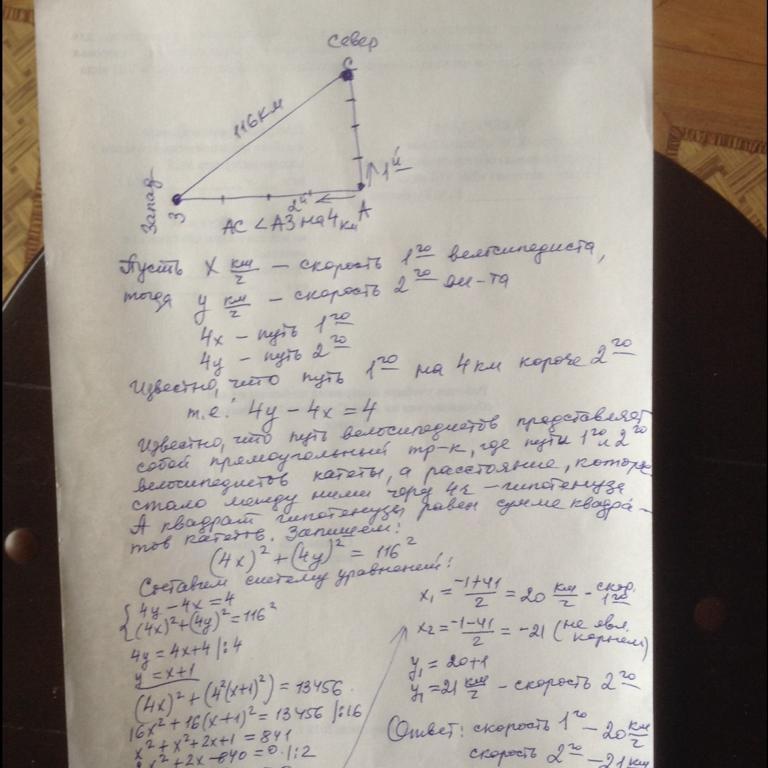 Север
С
116 км
1й
Запад
З
2й
А
АС < АЗ на 4 км
Пусть x км/ч — скорость 1го велосипедиста,
тогда y км/ч — скорость 2го
4x — путь 1го
4y — путь 2го
Известно, что путь 1го на 4 км короче 2го
т.е. 4y − 4x = 4
Известно, что путь велосипедистов представляет
собой прямоугольный тр-к, где путь 1го и 2го
велосипедистов катеты, а расстояние, которое
стало между ними через 4ч — гипотенуза
А квадрат гипотенузы равен сумме квадра-
тов катетов. Запишем:
(4x)² + (4y)² = 116²
Составим систему уравнений:
{ 4y − 4x = 4
(4x)² + (4y)² = 116²
4y = 4x + 4 |:4
y = x + 1
(4x)² + (4²(x+1)²) = 13456
16x² + 16(x+1)² = 13456 |:16
x² + x² + 2x + 1 = 841
2x² + 2x − 840 = 0 |:2
x₁ = (−1+41)/2 = 20 км/ч − скор. 1го
x₂ = (−1−41)/2 = −21 (не явл. корнем)
y₁ = 20+1
y₁ = 21 км/ч − скорость 2го
Ответ: скорость 1го − 20 км/ч
скорость 2го − 21 км